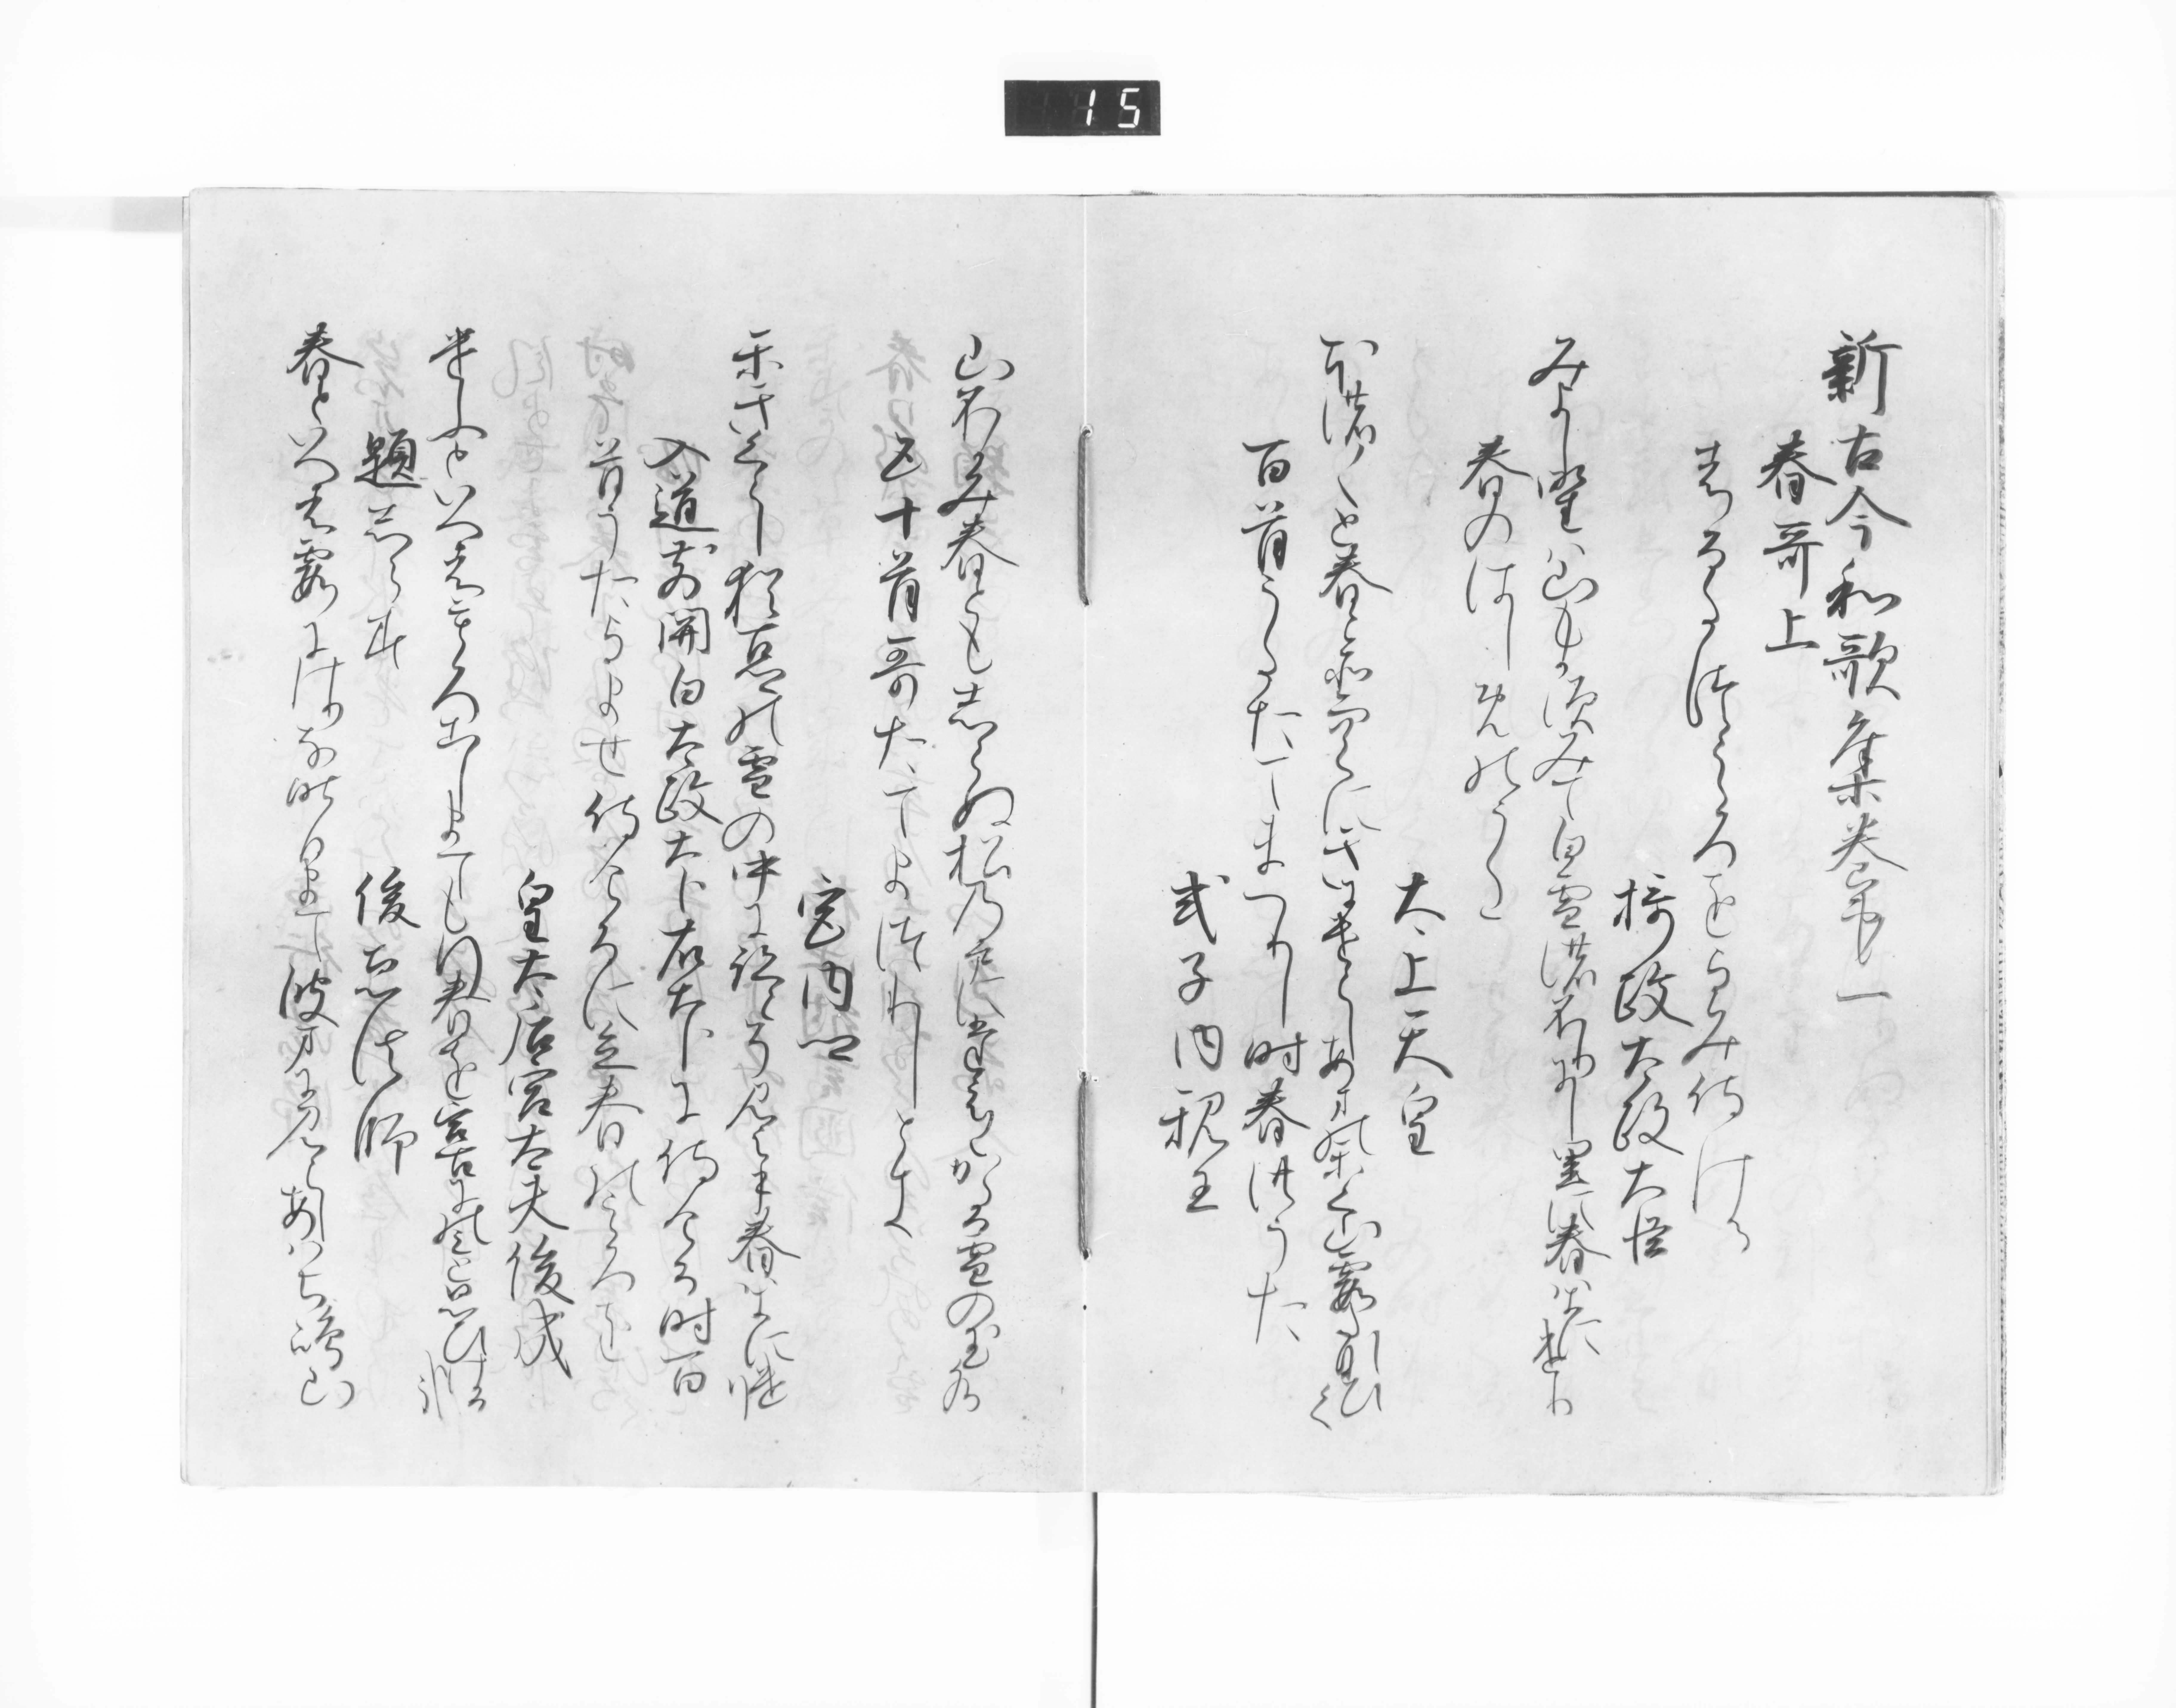 15
新古今和歌集巻第一
春哥上
春たつこゝろをよみ侍ける
摂政太政大臣
みよし野は山もかすみて白雪のふりにし里に春はきにけり
春のはしめのうた
太上天皇
ほの〱と春こそ空にきにけらしあまのかく山霞たなひく
百首うたたてまつりし時春のうた
式子内親王
山ふかみ春ともしらぬ松の戸にたえ〱かゝる雪の玉水
五十首哥たてまつりしとき
宮内卿
かきくらし猶ふる里の雪の中に跡こそ見えね春はきにけり
入道前関白太政大臣右大臣に侍ける時百
首うたよませ侍けるに立春のこゝろを
皇太后宮大夫俊成
けふといへはもろこしまても行春を都にのみと思ひける哉
題しらす
俊恵法師
春といへは霞にけりなきのふまて波まに見えしあはち嶋山